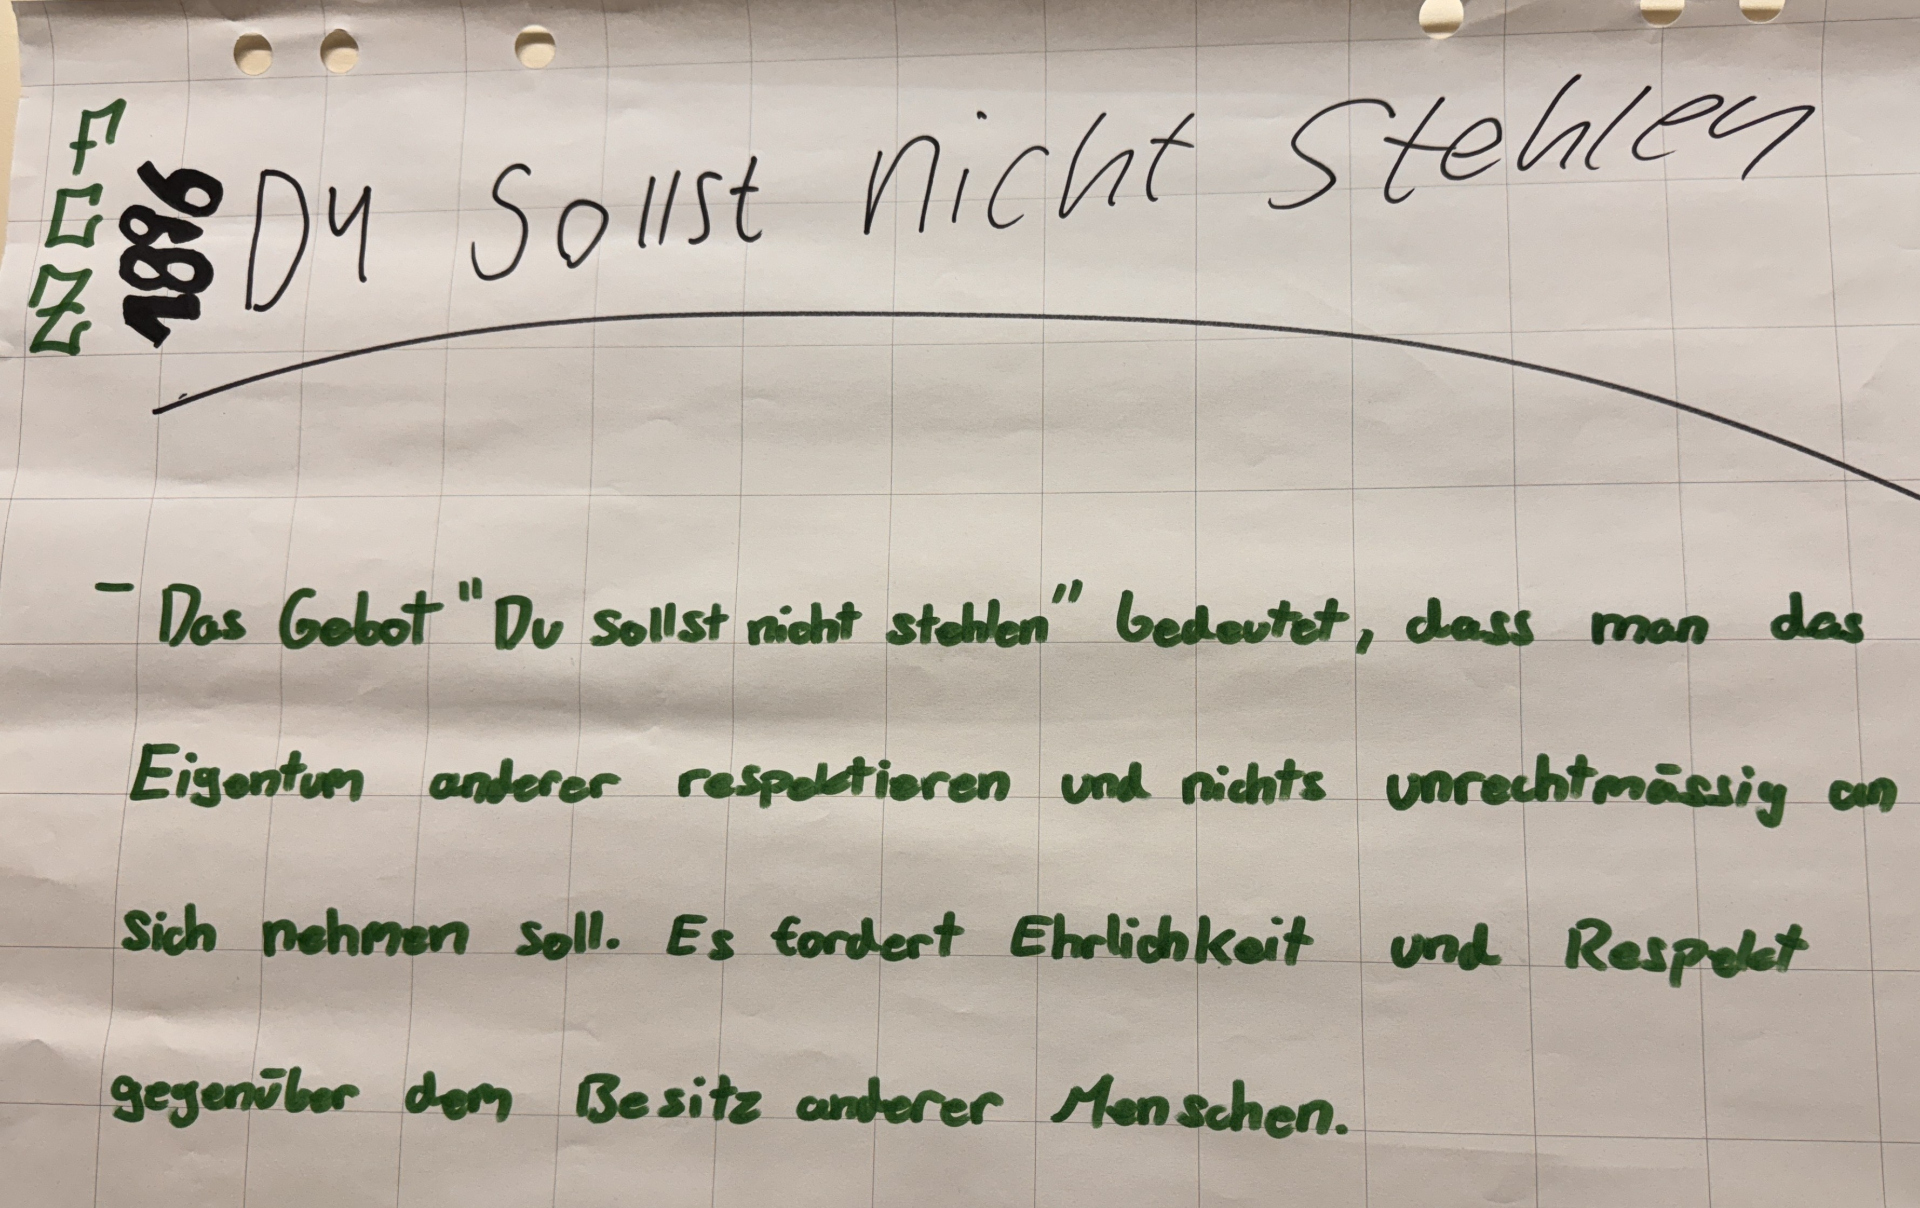 FCZ
1896
Du sollst nicht stehlen
- Das Gebot "Du sollst nicht stehlen" bedeutet, dass man das
Eigentum anderer respektieren und nichts unrechtmässig an
sich nehmen soll. Es fordert Ehrlichkeit und Respekt
gegenüber dem Besitz anderer Menschen.